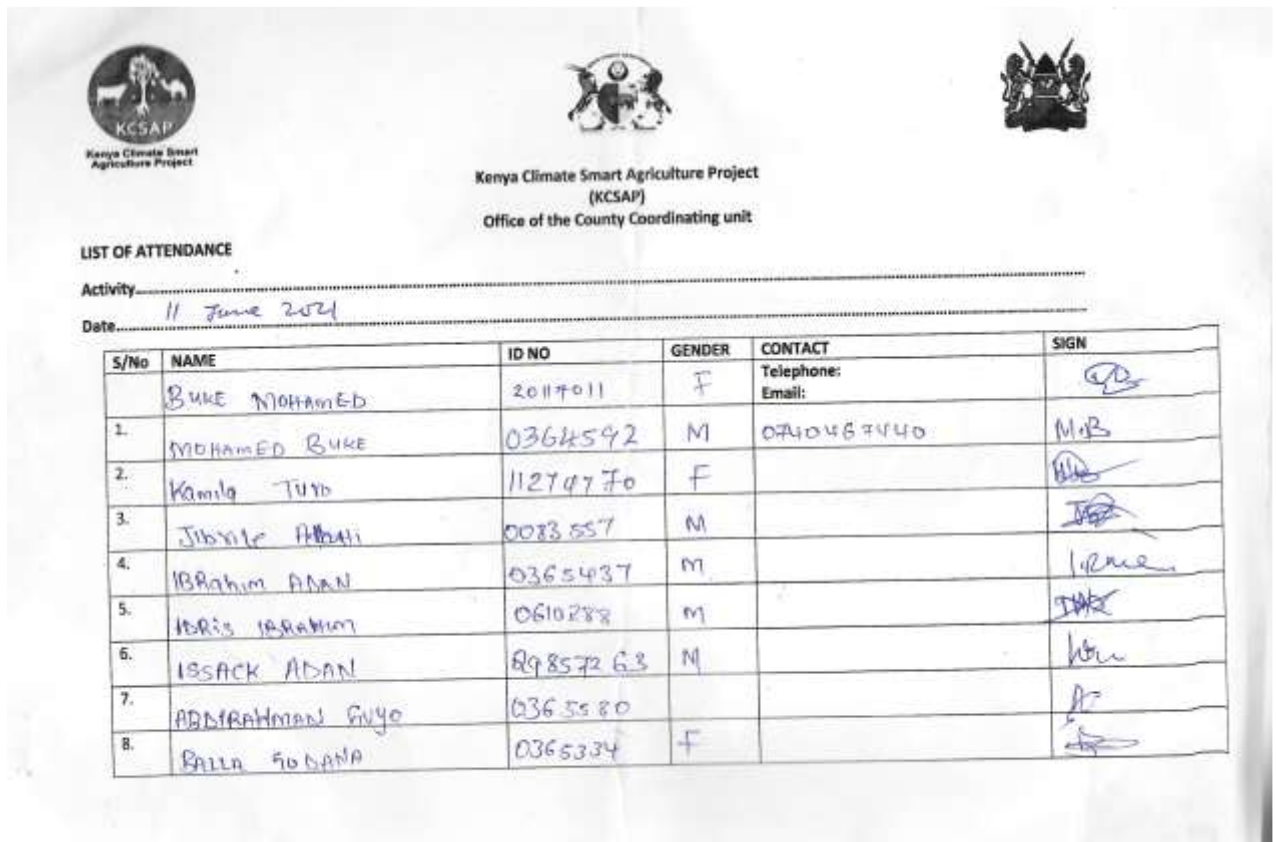 KCSAP
Kenya Climate Smart
Agriculture Project
Kenya Climate Smart Agriculture Project
(KCSAP)
Office of the County Coordinating unit
LIST OF ATTENDANCE
Activity
Date 11 June 2021
S/No NAME ID NO GENDER CONTACT SIGN
BUKE MOHAMED 20117011 F Telephone:
Email:
1. MOHAMED BUKE 0364592 M 0740467440 M.B
2. Kamila 11274770 F
3. Jibrile 0083557 M
4. IBRahim ADAN 0365437 M
5. IDRis IBRAHIM 0610288 M
6. ISSACK ADAN 29857263 M
7. ABDIRAHMAN GUYO 0365580
8. GODANA 0365334 F